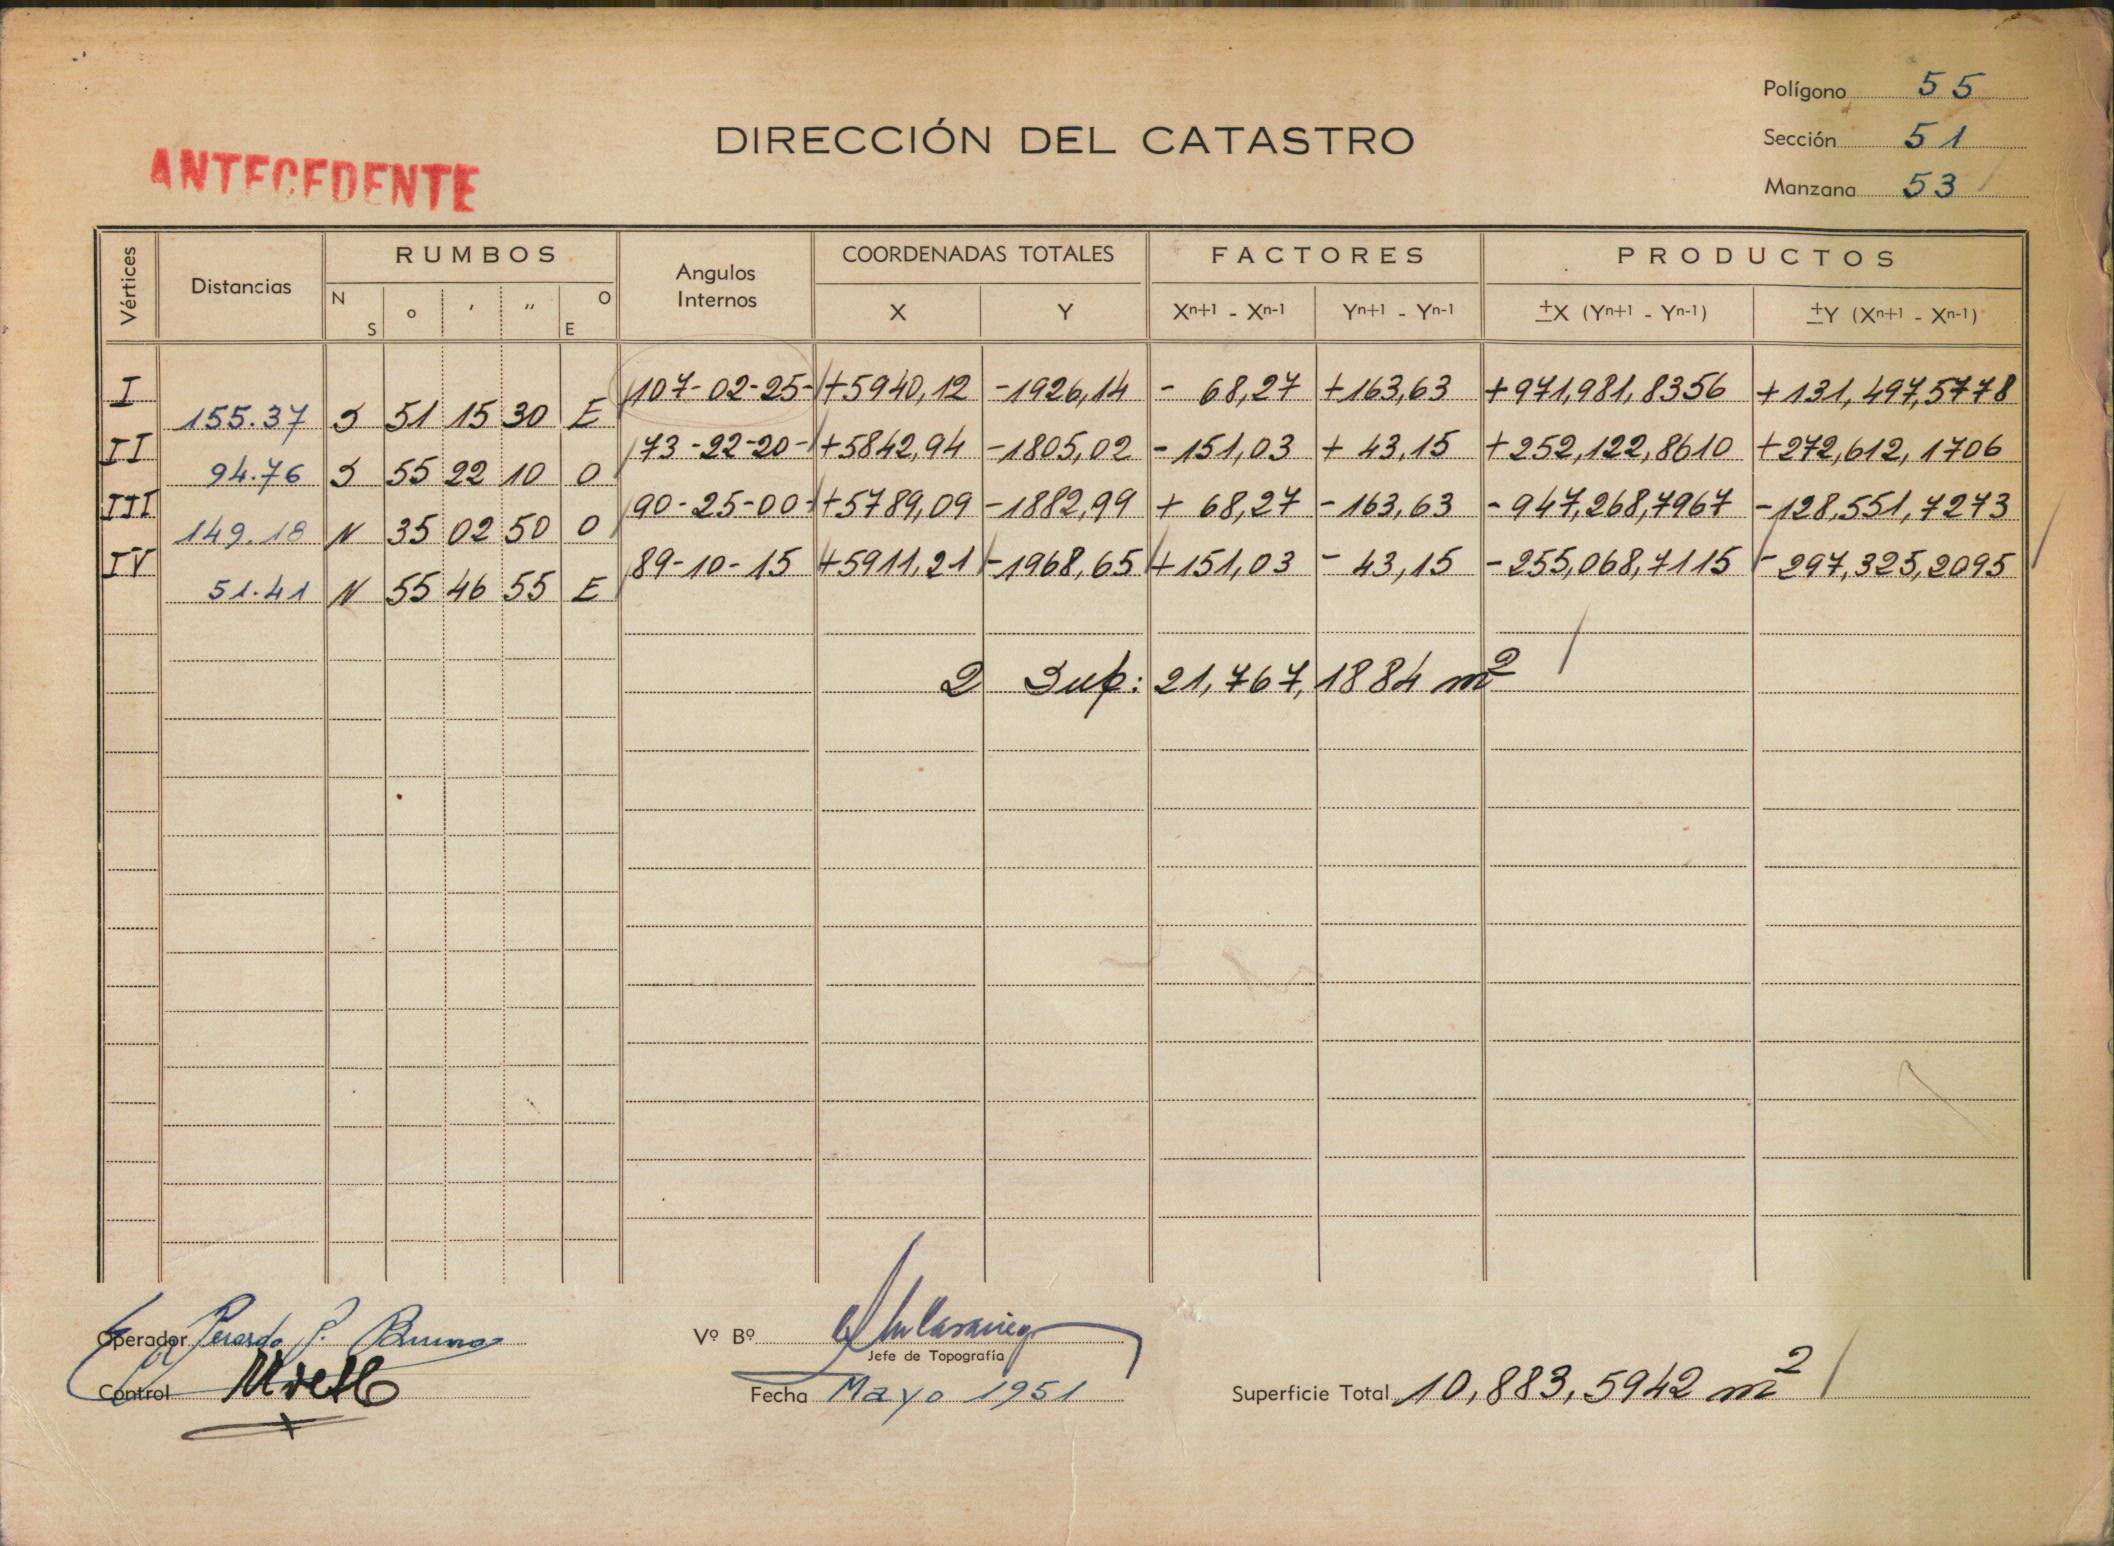 Polígono 55
DIRECCIÓN DEL CATASTRO
Sección 51
ANTECEDENTE
Manzana 53
Vértices Distancias RUMBOS Angulos Internos COORDENADAS TOTALES FACTORES PRODUCTOS
N S o ' " O E X Y Xn+1 - Xn-1 Yn+1 - Yn-1 ±X (Yn+1 - Yn-1) ±Y (Xn+1 - Xn-1)
I 107-02-25- +5940,12 -1926,14 - 68,27 +163,63 +971,981,8356 +131,497,5778
155.37 S 51 15 30 E
II 73-22-20- +5842,94 -1805,02 -151,03 + 43,15 +252,122,8610 +272,612,1706
94.76 S 55 22 10 O
III 90-25-00- +5789,09 -1882,99 + 68,27 -163,63 -947,268,7967 -128,551,7273
149.18 N 35 02 50 O
IV 89-10-15 +5911,21 -1968,65 +151,03 - 43,15 -255,068,7115 -297,325,2095
51.41 N 55 46 55 E
2 Sup: 21,767,1884 m2
Operador Vº Bº
Jefe de Topografía
Control Fecha Mayo 1951 Superficie Total 10,883,5942 m2